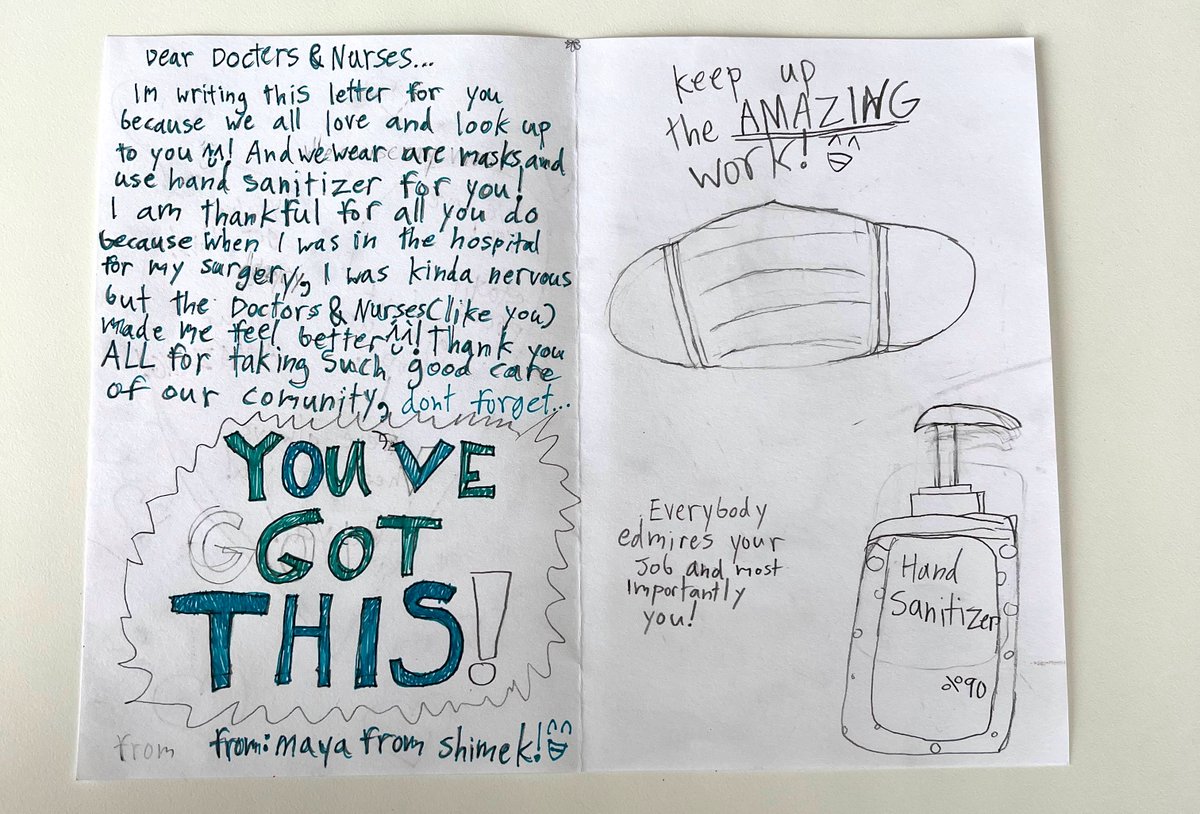 Dear Docters & Nurses...
Im writing this letter for you
because we all love and look up
to you! And we wear are masks, and
use hand sanitizer for you!
I am thankful for all you do
because when I was in the hospital
for my surgery, I was kinda nervous
but the Doctors & Nurses (like you)
made me feel better! Thank you
ALL for taking such good care
of our comunity, dont forget...
YOU'VE
GOT
THIS!
from from: maya from shimek!
keep up
the AMAZING
work!
Everybody
edmires your
Job and most
importantly
you!
Hand
Sanitizer
%90